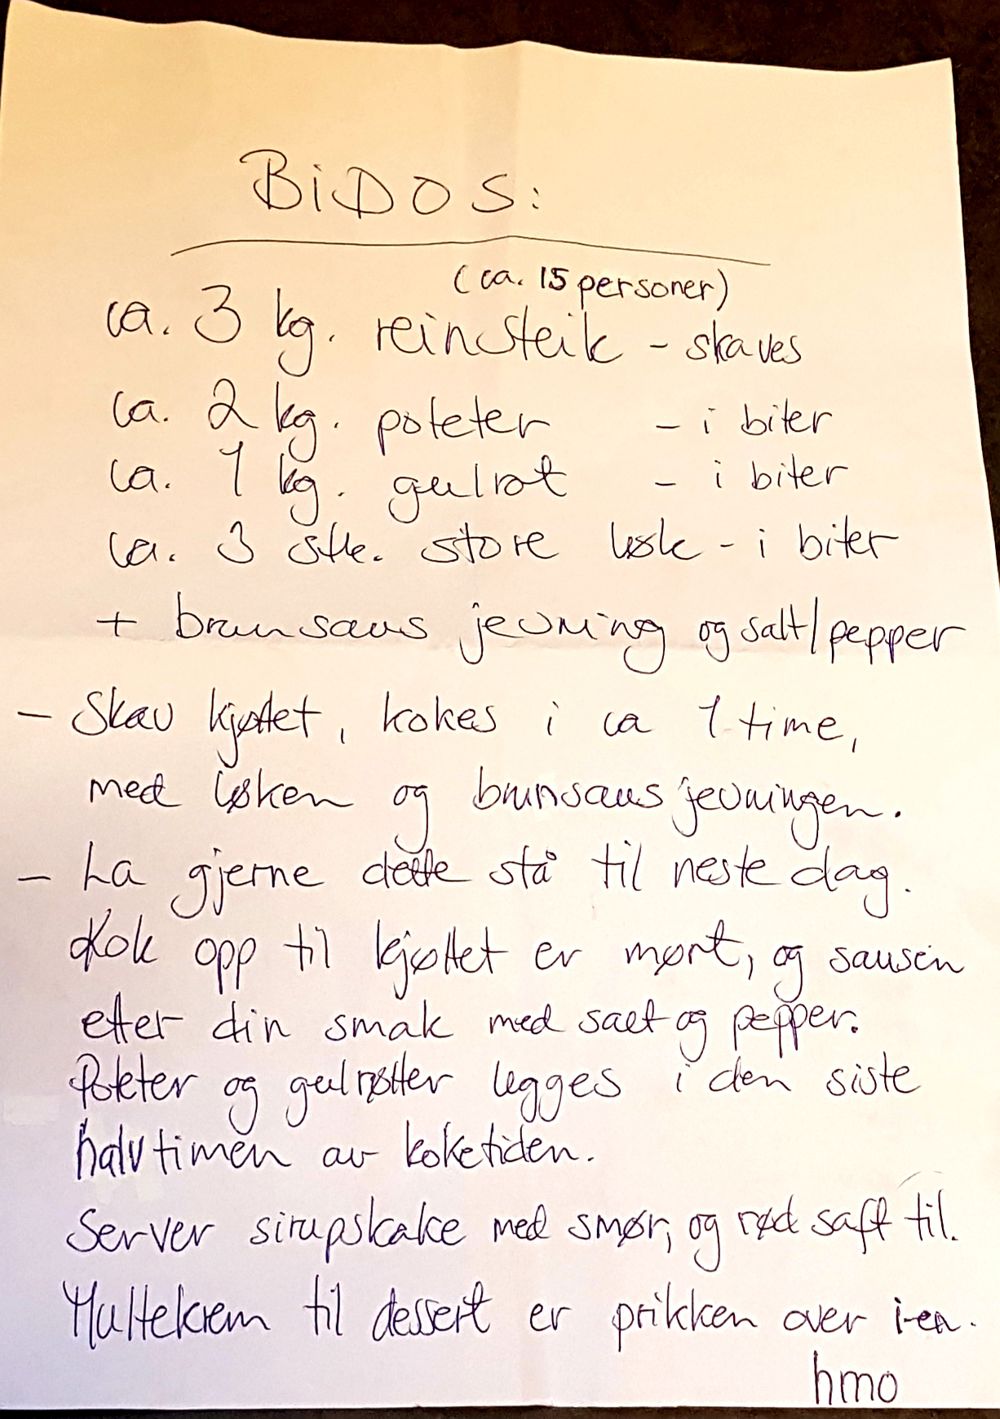 BiDOS:
(ca. 15 personer)
ca. 3 kg. reinsteik - skaves
ca. 2 kg. poteter - i biter
ca. 1 kg. gulrot - i biter
ca. 3 stk. store løk - i biter
+ brunsaus jevning og salt/pepper
- Skav kjøttet, kokes i ca 1 time,
med løken og brunsausjevningen.
- La gjerne dette stå til neste dag.
Kok opp til kjøttet er mørt, og sausen
etter din smak med salt og pepper.
Poteter og gulrøtter legges i den siste
halvtimen av koketiden.
Server sirupskake med smør, og rød saft til.
Multekrem til dessert er prikken over i-en.
hmo